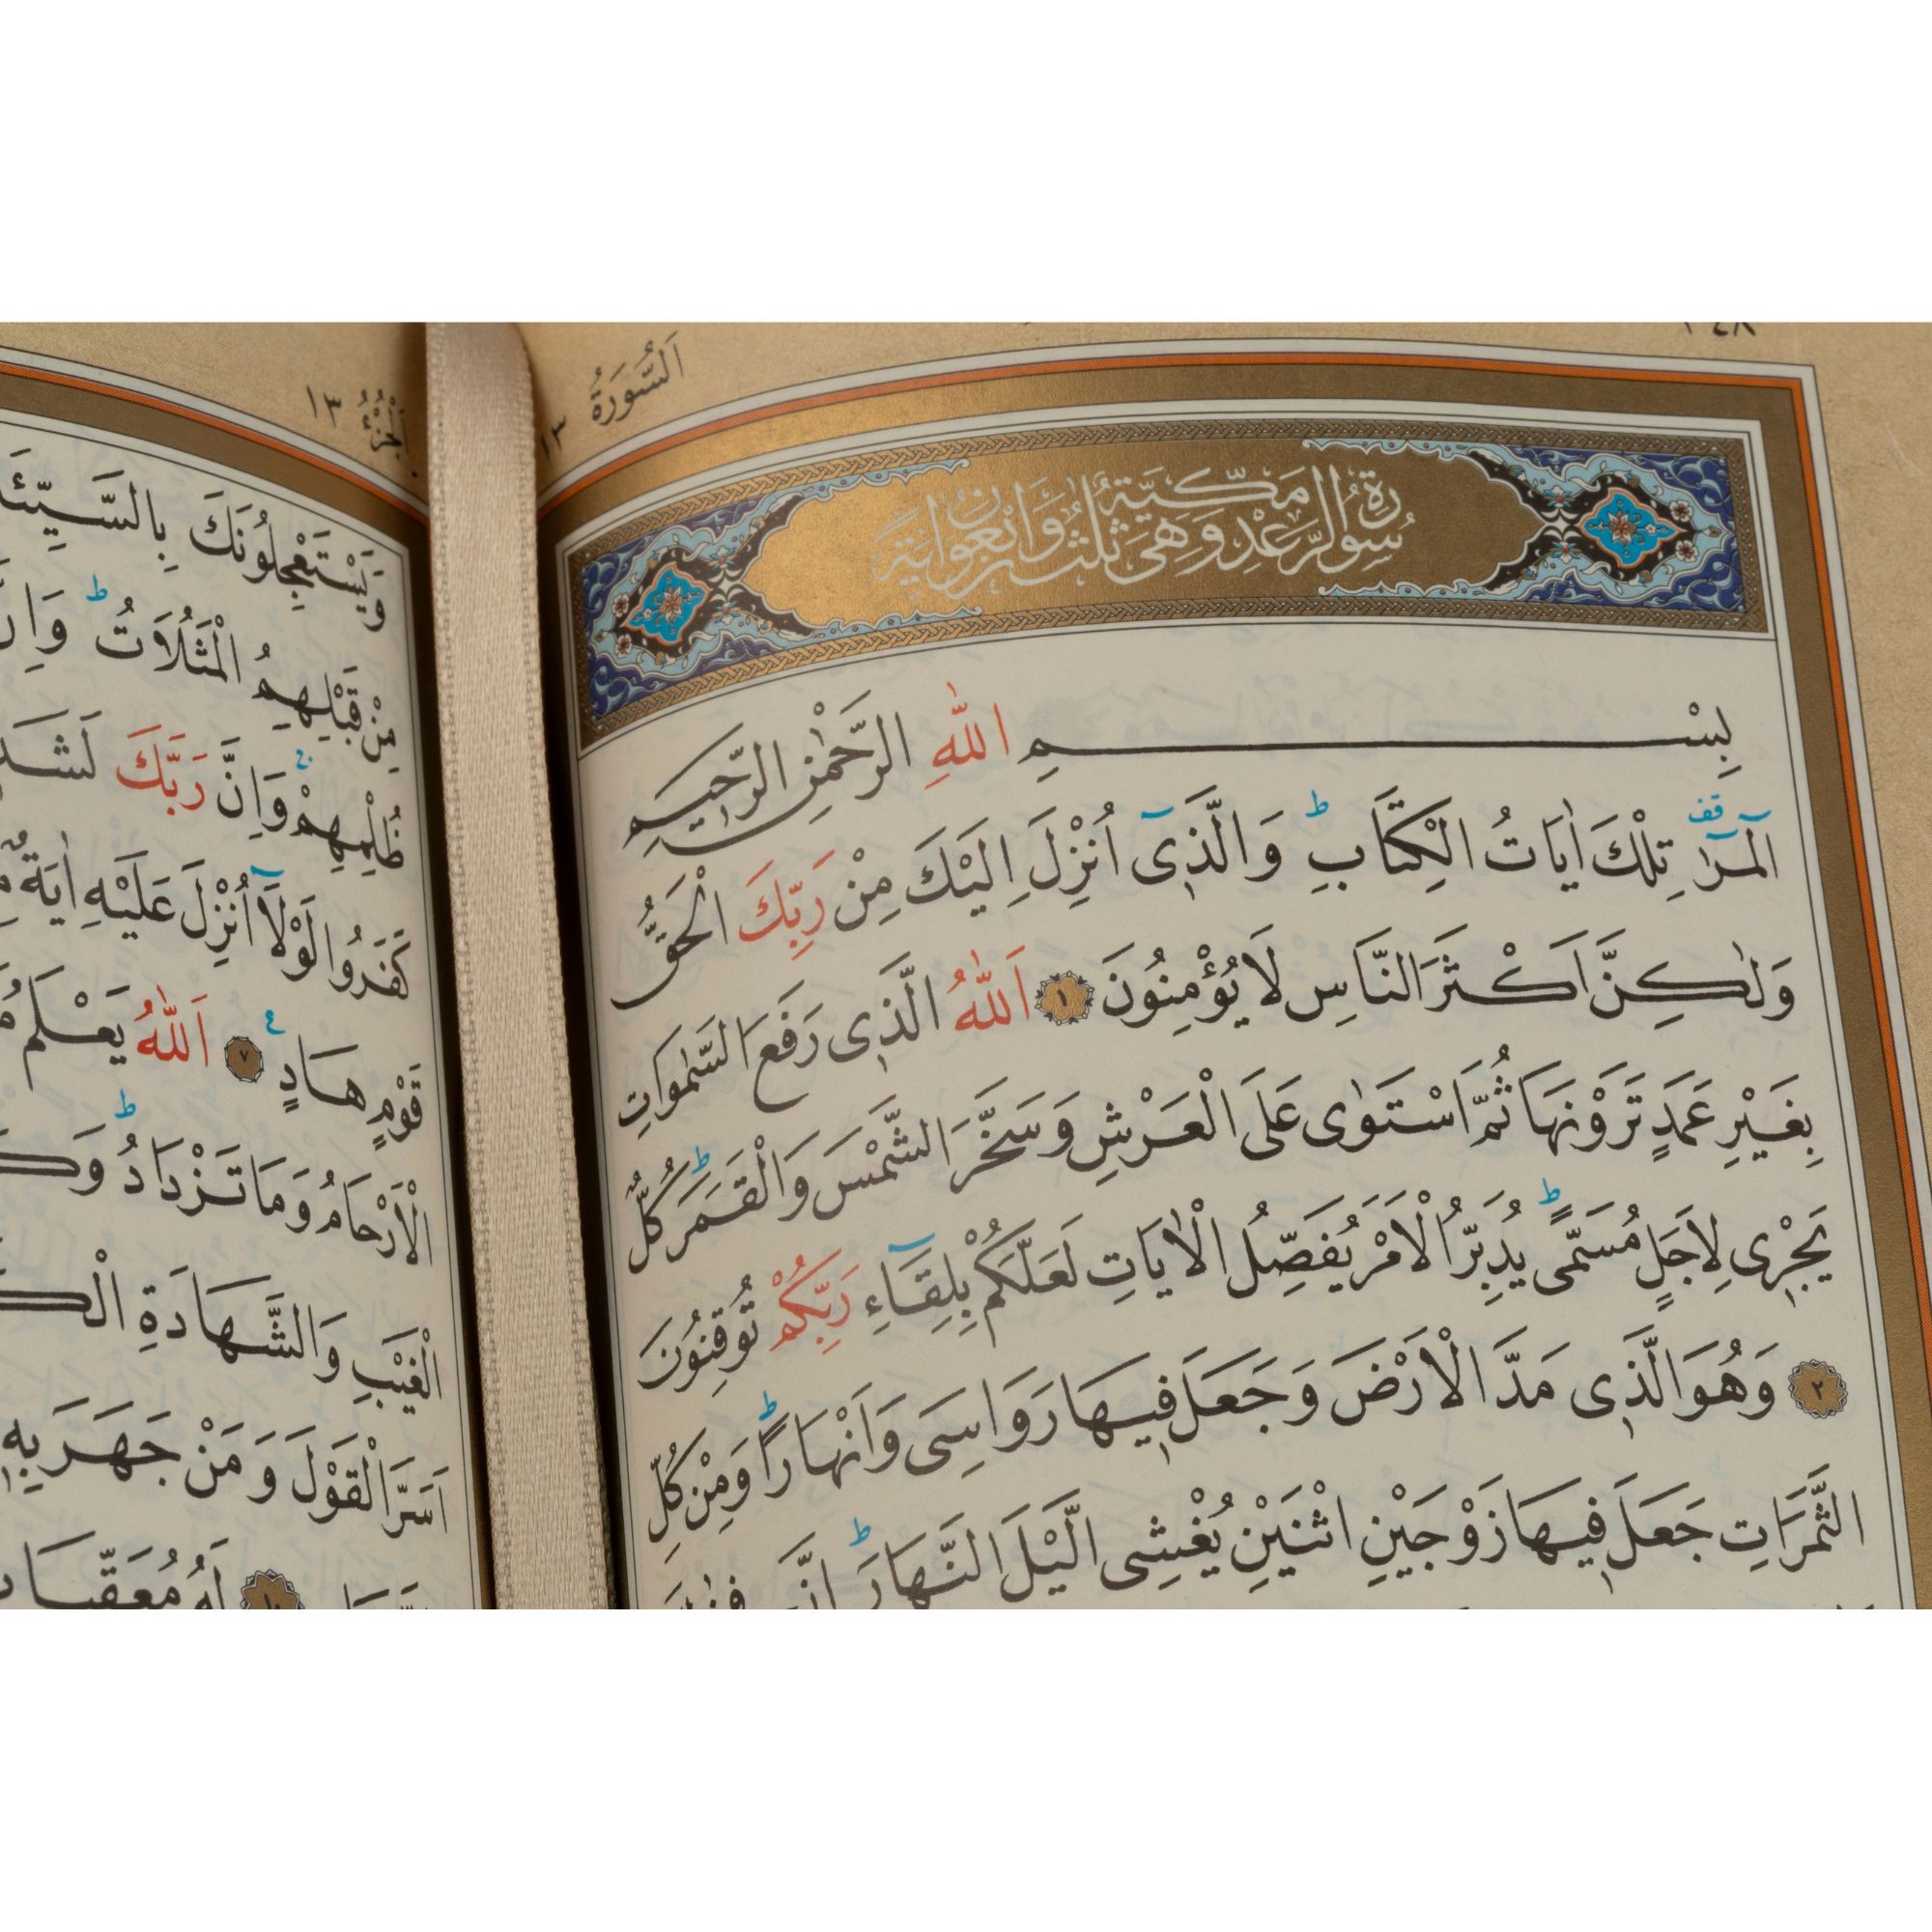 اَلسُّورَةُ ١٣
سُورَةُ الرَّعْدِ مَكِّيَّةٌ وَهِىَ ثَلٰثٌ وَاَرْبَعُونَ اٰيَةً
بِسْمِ اللّٰهِ الرَّحْمٰنِ الرَّحِيمِ
الٓمٓرٰ قف تِلْكَ اٰيَاتُ الْكِتَابِ ط وَالَّذ۪ٓى اُنْزِلَ اِلَيْكَ مِنْ رَبِّكَ الْحَقُّ
وَلٰكِنَّ اَكْثَرَ النَّاسِ لَا يُؤْمِنُونَ ١ اَللّٰهُ الَّذ۪ى رَفَعَ السَّمٰوَاتِ
بِغَيْرِ عَمَدٍ تَرَوْنَهَا ثُمَّ اسْتَوٰى عَلَى الْعَرْشِ وَسَخَّرَ الشَّمْسَ وَالْقَمَرَ ط كُلٌّ
يَجْر۪ى لِاَجَلٍ مُسَمًّى ط يُدَبِّرُ الْاَمْرَ يُفَصِّلُ الْاٰيَاتِ لَعَلَّكُمْ بِلِقَٓاءِ رَبِّكُمْ تُوقِنُونَ
٢ وَهُوَ الَّذ۪ى مَدَّ الْاَرْضَ وَجَعَلَ ف۪يهَا رَوَاسِىَ وَاَنْهَارًا ط وَمِنْ كُلِّ
الثَّمَرَاتِ جَعَلَ ف۪يهَا زَوْجَيْنِ اثْنَيْنِ يُغْشِى الَّيْلَ النَّهَارَ ط اِنَّ
اَلْجُزْءُ ١٣
وَيَسْتَعْجِلُونَكَ بِالسَّيِّئَ
مِنْ قَبْلِهِمُ الْمَثُلَاتُ ط وَاِنَّ
ظُلْمِهِمْ وَاِنَّ رَبَّكَ لَشَد
كَفَرُوا لَوْلَٓا اُنْزِلَ عَلَيْهِ اٰيَةٌ
قَوْمٍ هَادٍ ع ٧ اَللّٰهُ يَعْلَمُ
الْاَرْحَامُ وَمَا تَزْدَادُ ط وَكُ
الْغَيْبِ وَالشَّهَادَةِ الْكَ
اَسَرَّ الْقَوْلَ وَمَنْ جَهَرَ بِه۪
لَهُ مُعَقِّبَات